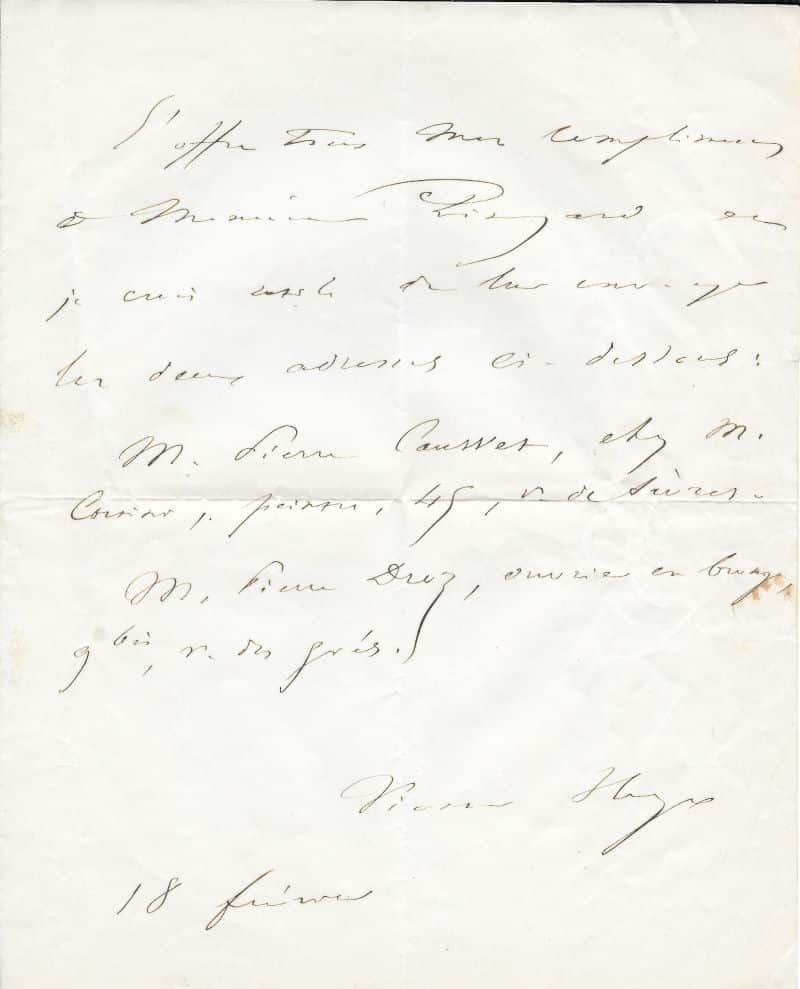 J'offre tous mes compliments
à Monsieur
je crois utile de lui envoyer
les deux adresses ci-dessous :
M. Pierre Causset, chez M.
peintre, 45, r. de Sèvres.
M. Pierre Droz, ouvrier en bronze,
9 bis, r. des grés.
Victor Hugo
18 février